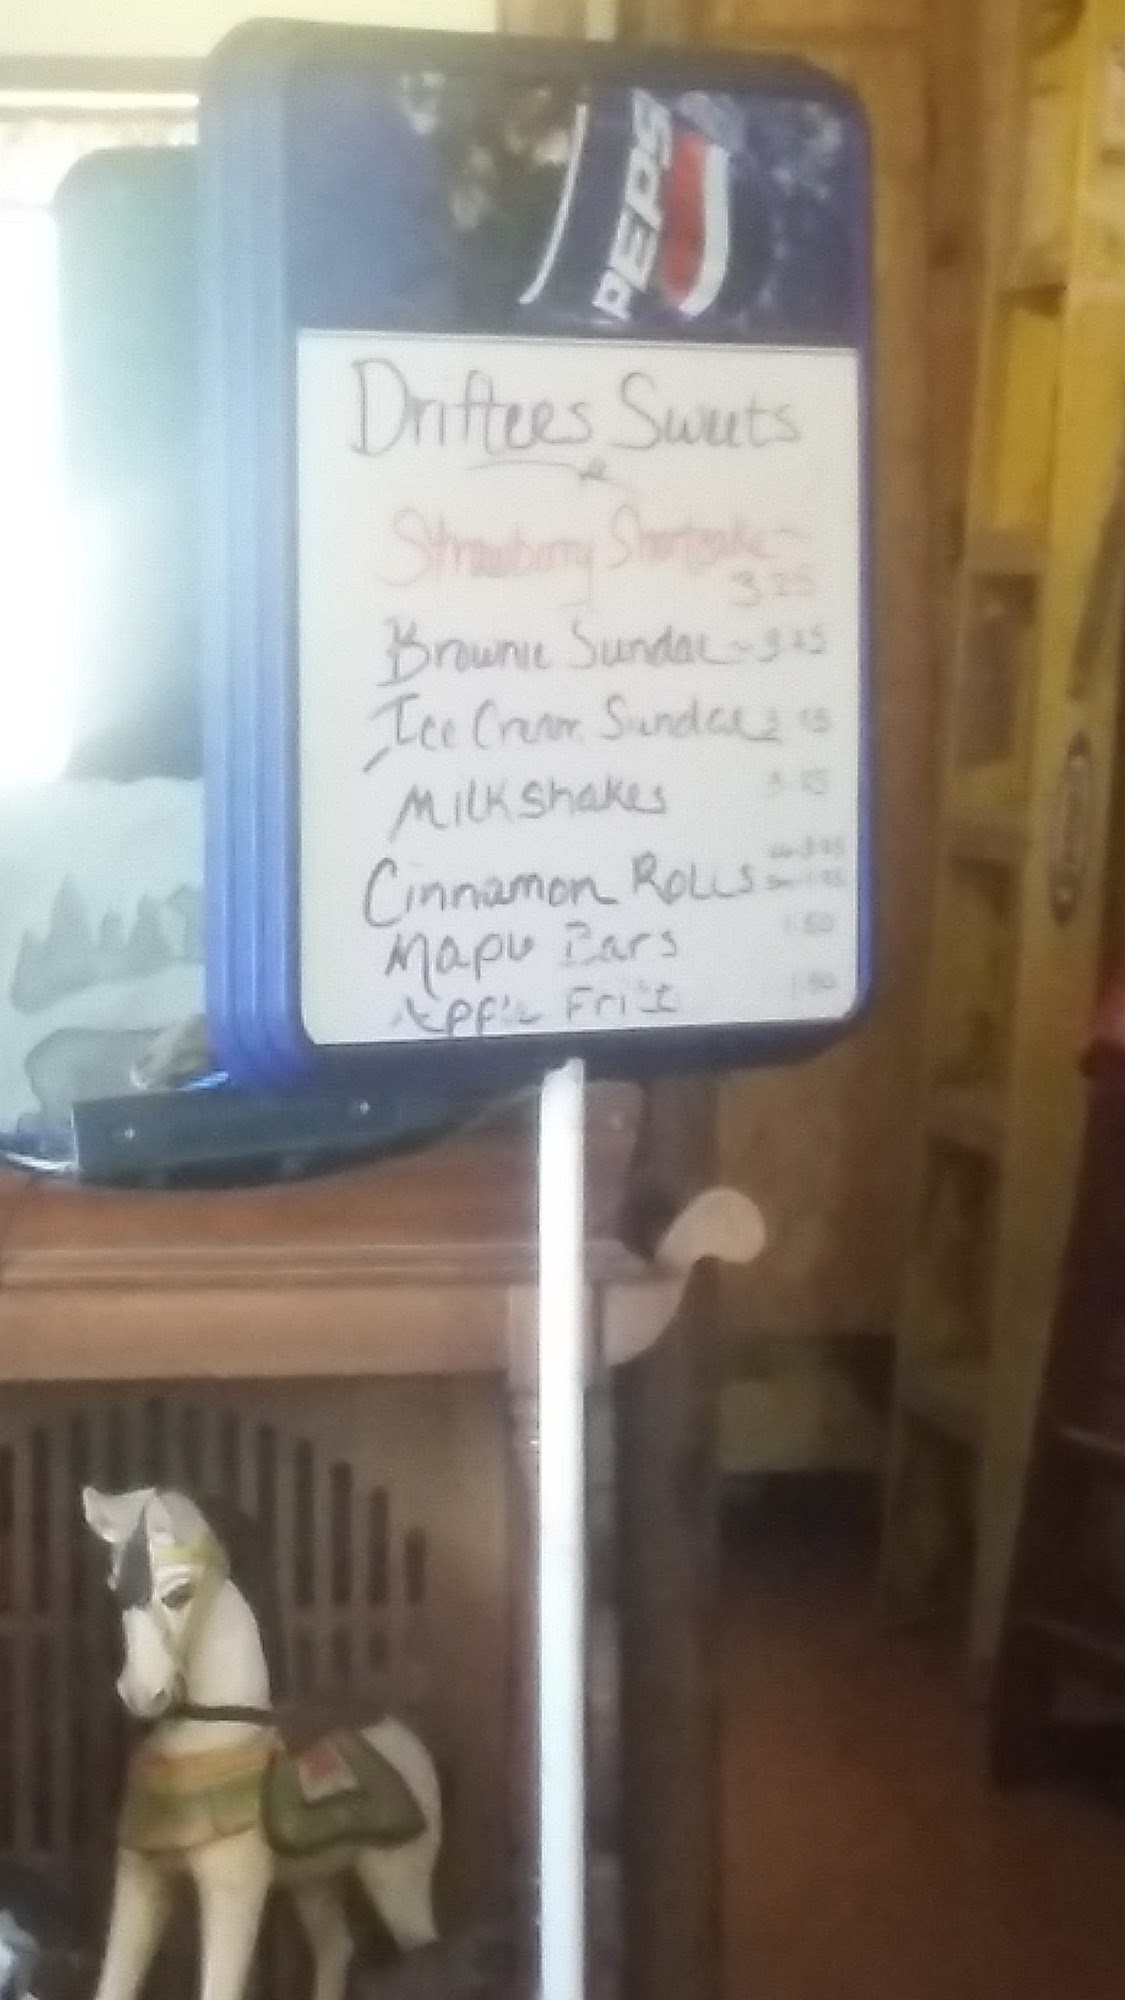 PEPSI
Driftees Sweets
Strawberry Shortcake -
3.25
Brownie Sundae - 3.25
Ice Cream Sundae
Milkshakes
Cinnamon Rolls
Maple Bars 1.50
Fritt 1.50